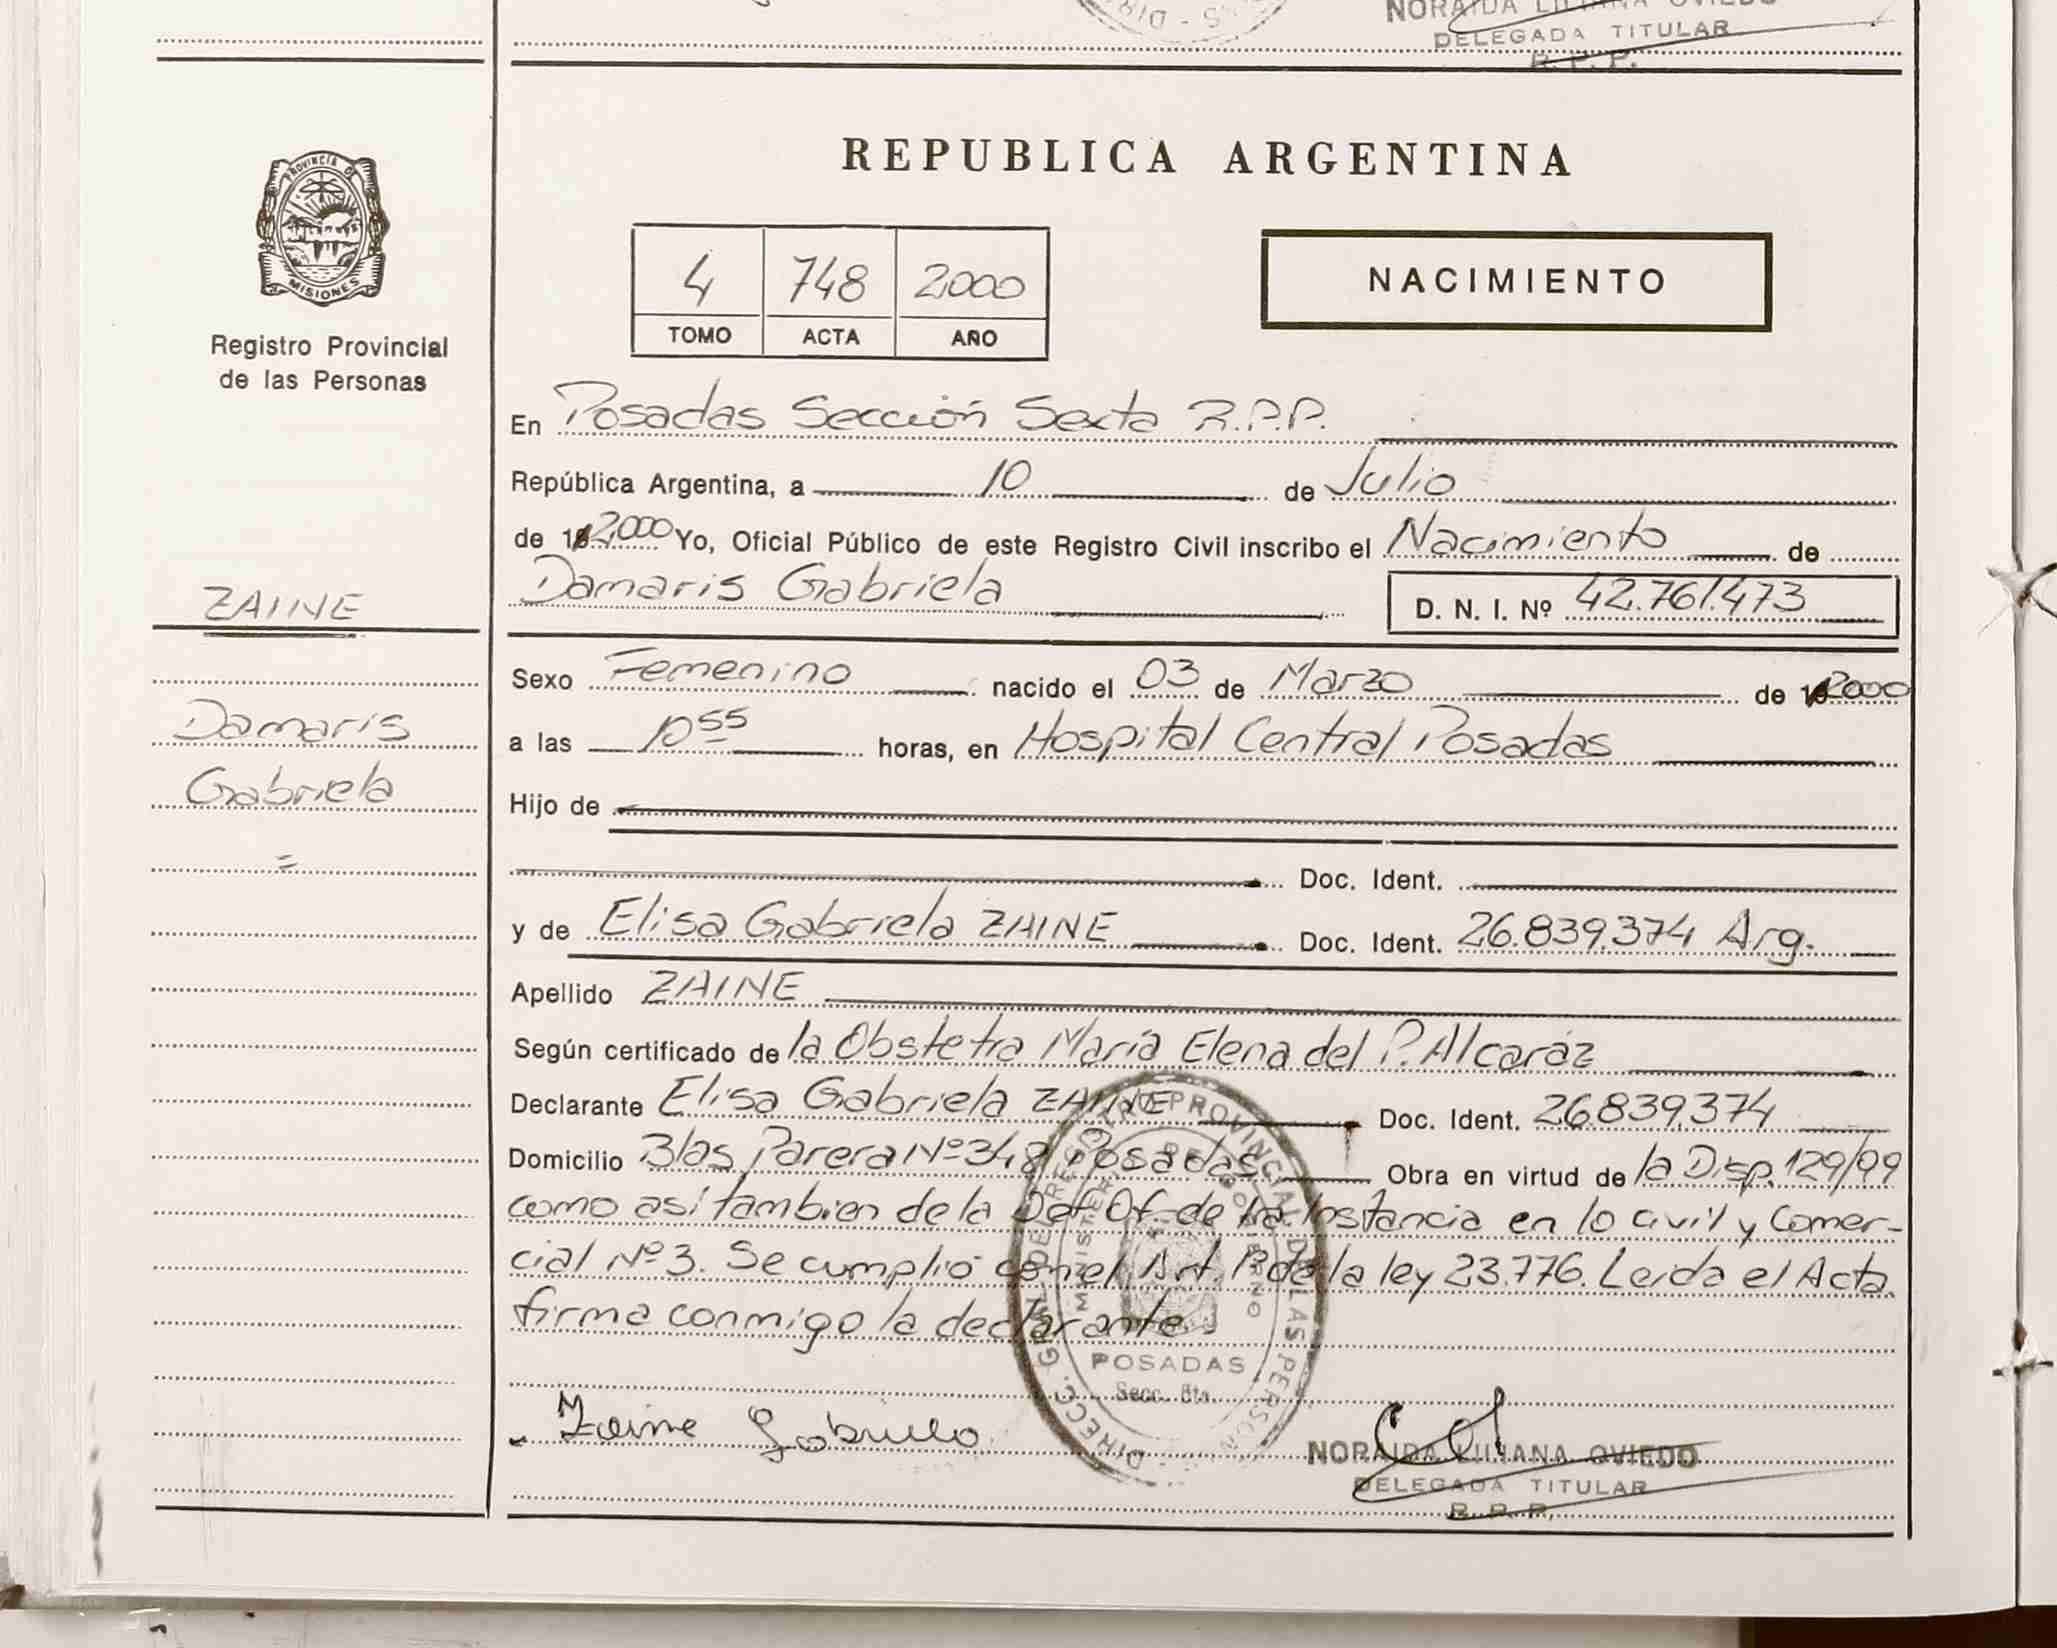 NORAIDA LILIANA OVIEDO
DELEGADA TITULAR
R. P. P.
PROVINCIA DE
MISIONES
Registro Provincial
de las Personas
REPUBLICA ARGENTINA
4 748 2000
TOMO ACTA AÑO
NACIMIENTO
En Posadas Sección Sexta R.P.P.
República Argentina, a 10 de Julio
de 2000 Yo, Oficial Público de este Registro Civil inscribo el Nacimiento de
Damaris Gabriela D. N. I. Nº 42.761.473
ZAINE
Damaris
Gabriela
=
Sexo Femenino nacido el 03 de Marzo de 2000
a las 10 55 horas, en Hospital Central Posadas
Hijo de
Doc. Ident.
y de Elisa Gabriela ZAINE Doc. Ident. 26.839.374 Arg.
Apellido ZAINE
Según certificado de la Obstetra María Elena del P. Alcaráz
Declarante Elisa Gabriela ZAINE Doc. Ident. 26.839.374
Domicilio Blas Parera Nº 348 Posadas Obra en virtud de la Disp. 129/99
como así tambien de la Def. Of. de 1ra. Instancia en lo civil y Comer-
cial Nº 3. Se cumplió con el Art. 1º de la ley 23.776. Leida el Acta
firma conmigo la declarante.
DIRECC. GRAL DE REGISTRO PROVINCIAL DE LAS PERSON
MINISTERIO DE GOBIERNO
POSADAS
Secc. 6ta.
Zaine Gabriela
NORAIDA LILIANA OVIEDO
DELEGADA TITULAR
R. P. P.